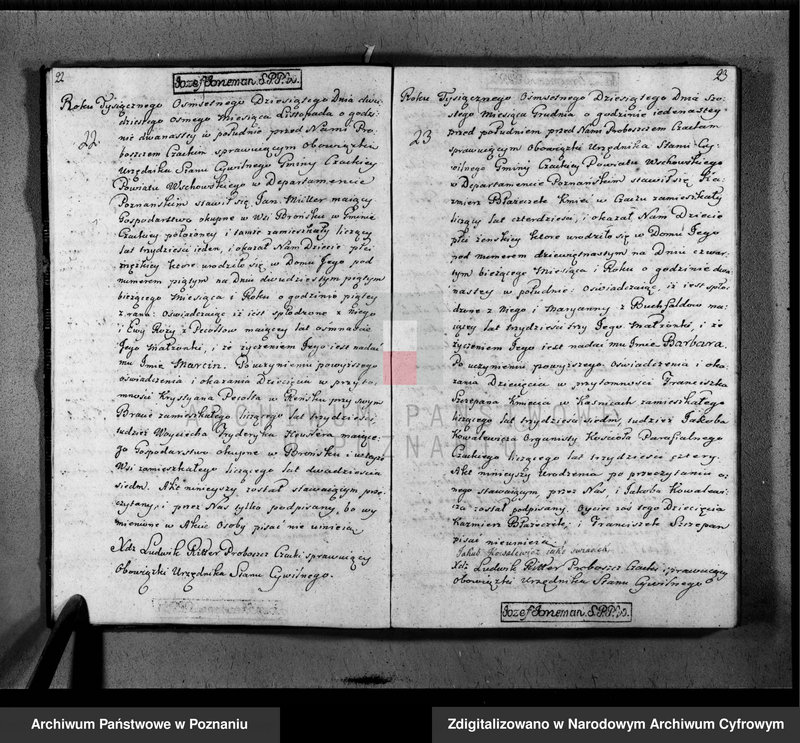 22
Jozef Joneman S.P.P.W.
Roku Tysiącznego Osmsetnego Dziesiątego Dnia dwu
dziestego osmego Miesiąca Listopada o godzi
22. nie dwanastey w południe przed Nami Pro
boszczem Czackim sprawuiącym Obowiązki
Urzędnika Stanu Cywilnego Gminy Czackiey
Powiatu Wschowskiego w Departamencie
Poznańskim stawił się Jan Müller maiący
Gospodarstwo okupne w Wsi Brońsku w Gminie
Czackiey położoney i tamże zamieszkały liczący
lat trzydzieści ieden, i okazał Nam Dziecie płci
męzkiey ktore urodziło się w Domu Jego pod
numerem piątym na Dniu dwudziestym piątym
bieżącego Miesiąca i Roku o godzinie piątey
z rana: Oświadczaiąc iż iest spłodzone z Niego
i Ewy Rozy z maiącey lat osmnaście
Jego Małżonki, i że życzeniem Jego iest nadać
mu Imie Marcin. Po uczynieniu powyższego
oświadczenia i okazania Dziecięcia w przyto
mności Krystyana Pesolta w przy swym
Bracie zamieszkałego liczącego lat trzydzieści,
tudzież Woyciecha Fryderyka maiące
go Gospodarstwo okupne w Brońsku i w teyże
Wsi zamieszkałego liczącego lat dwadzieścia
siedm. Akt ninieyszy został stawaiącym prze
czytany, i przez Nas tylko podpisany, bo wy
mienione w Akcie Osoby pisać nie umieią
Xdz Ludwik Ritter Proboszcz Czacki sprawuiący
Obowiązki Urzędnika Stanu Cywilnego.
23
Roku Tysiącznego Osmsetnego Dziesiątego Dnia Szo
stego Miesiąca Grudnia o godzinie iedenastey
23 przed południem przed Nami Proboszczem Czackim
sprawuiącym Obowiązki Urzędnika Stanu Cy
wilnego Gminy Czackiey Powiatu Wschowskiego
w Departamencie Poznańskim stawił się Ka
zmierz Kmieć w Czaczu zamieszkały
liczący lat czterdzieści, i okazał Nam Dziecie
płci żenskiey ktore urodziło się w Domu Jego
pod numerem dziewiętnastym na Dniu czwar
tym bieżącego Miesiąca i Roku o godzinie dwu
nastey w południe: Oświadczaiąc, iż iest spło
dzone z Niego i Maryanny z Buchfaldow ma
iącey lat trzydzieści trzy Jego Małżonki, i że
życzeniem Jego iest nadać mu Imie Barbara.
Po uczynieniu powyższego oświadczenia i oka
zania Dziecięcia w przytomności Franciszka
Szczepana Kmiecia w Karmicach zamieszkałego
liczącego lat trzydzieści siedm, tudzież Jakoba
Kowalewicza Organisty Kościoła Parafialnego
Czackiego liczącego lat trzydzieści cztery.
Akt ninieyszy Urodzenia po przeczytaniu o
nego stawaiącym przez Nas i Jakoba Kowalewi
cza został podpisany. Oyciec zaś tego Dziecięcia
Kazmierz i Franciszek Szczepan
pisać nieumieią
Jakub Kowalewicz iako swiadek
Xdz Ludwik Ritter Proboszcz Czacki, sprawuiący
obowiązki Urzędnika Stanu Cywilnego
Jozef Joneman S.P.P.W.
ARCHIWUM PAŃSTWOWE
W POZNANIU
Archiwum Państwowe w Poznaniu
Zdigitalizowano w Narodowym Archiwum Cyfrowym